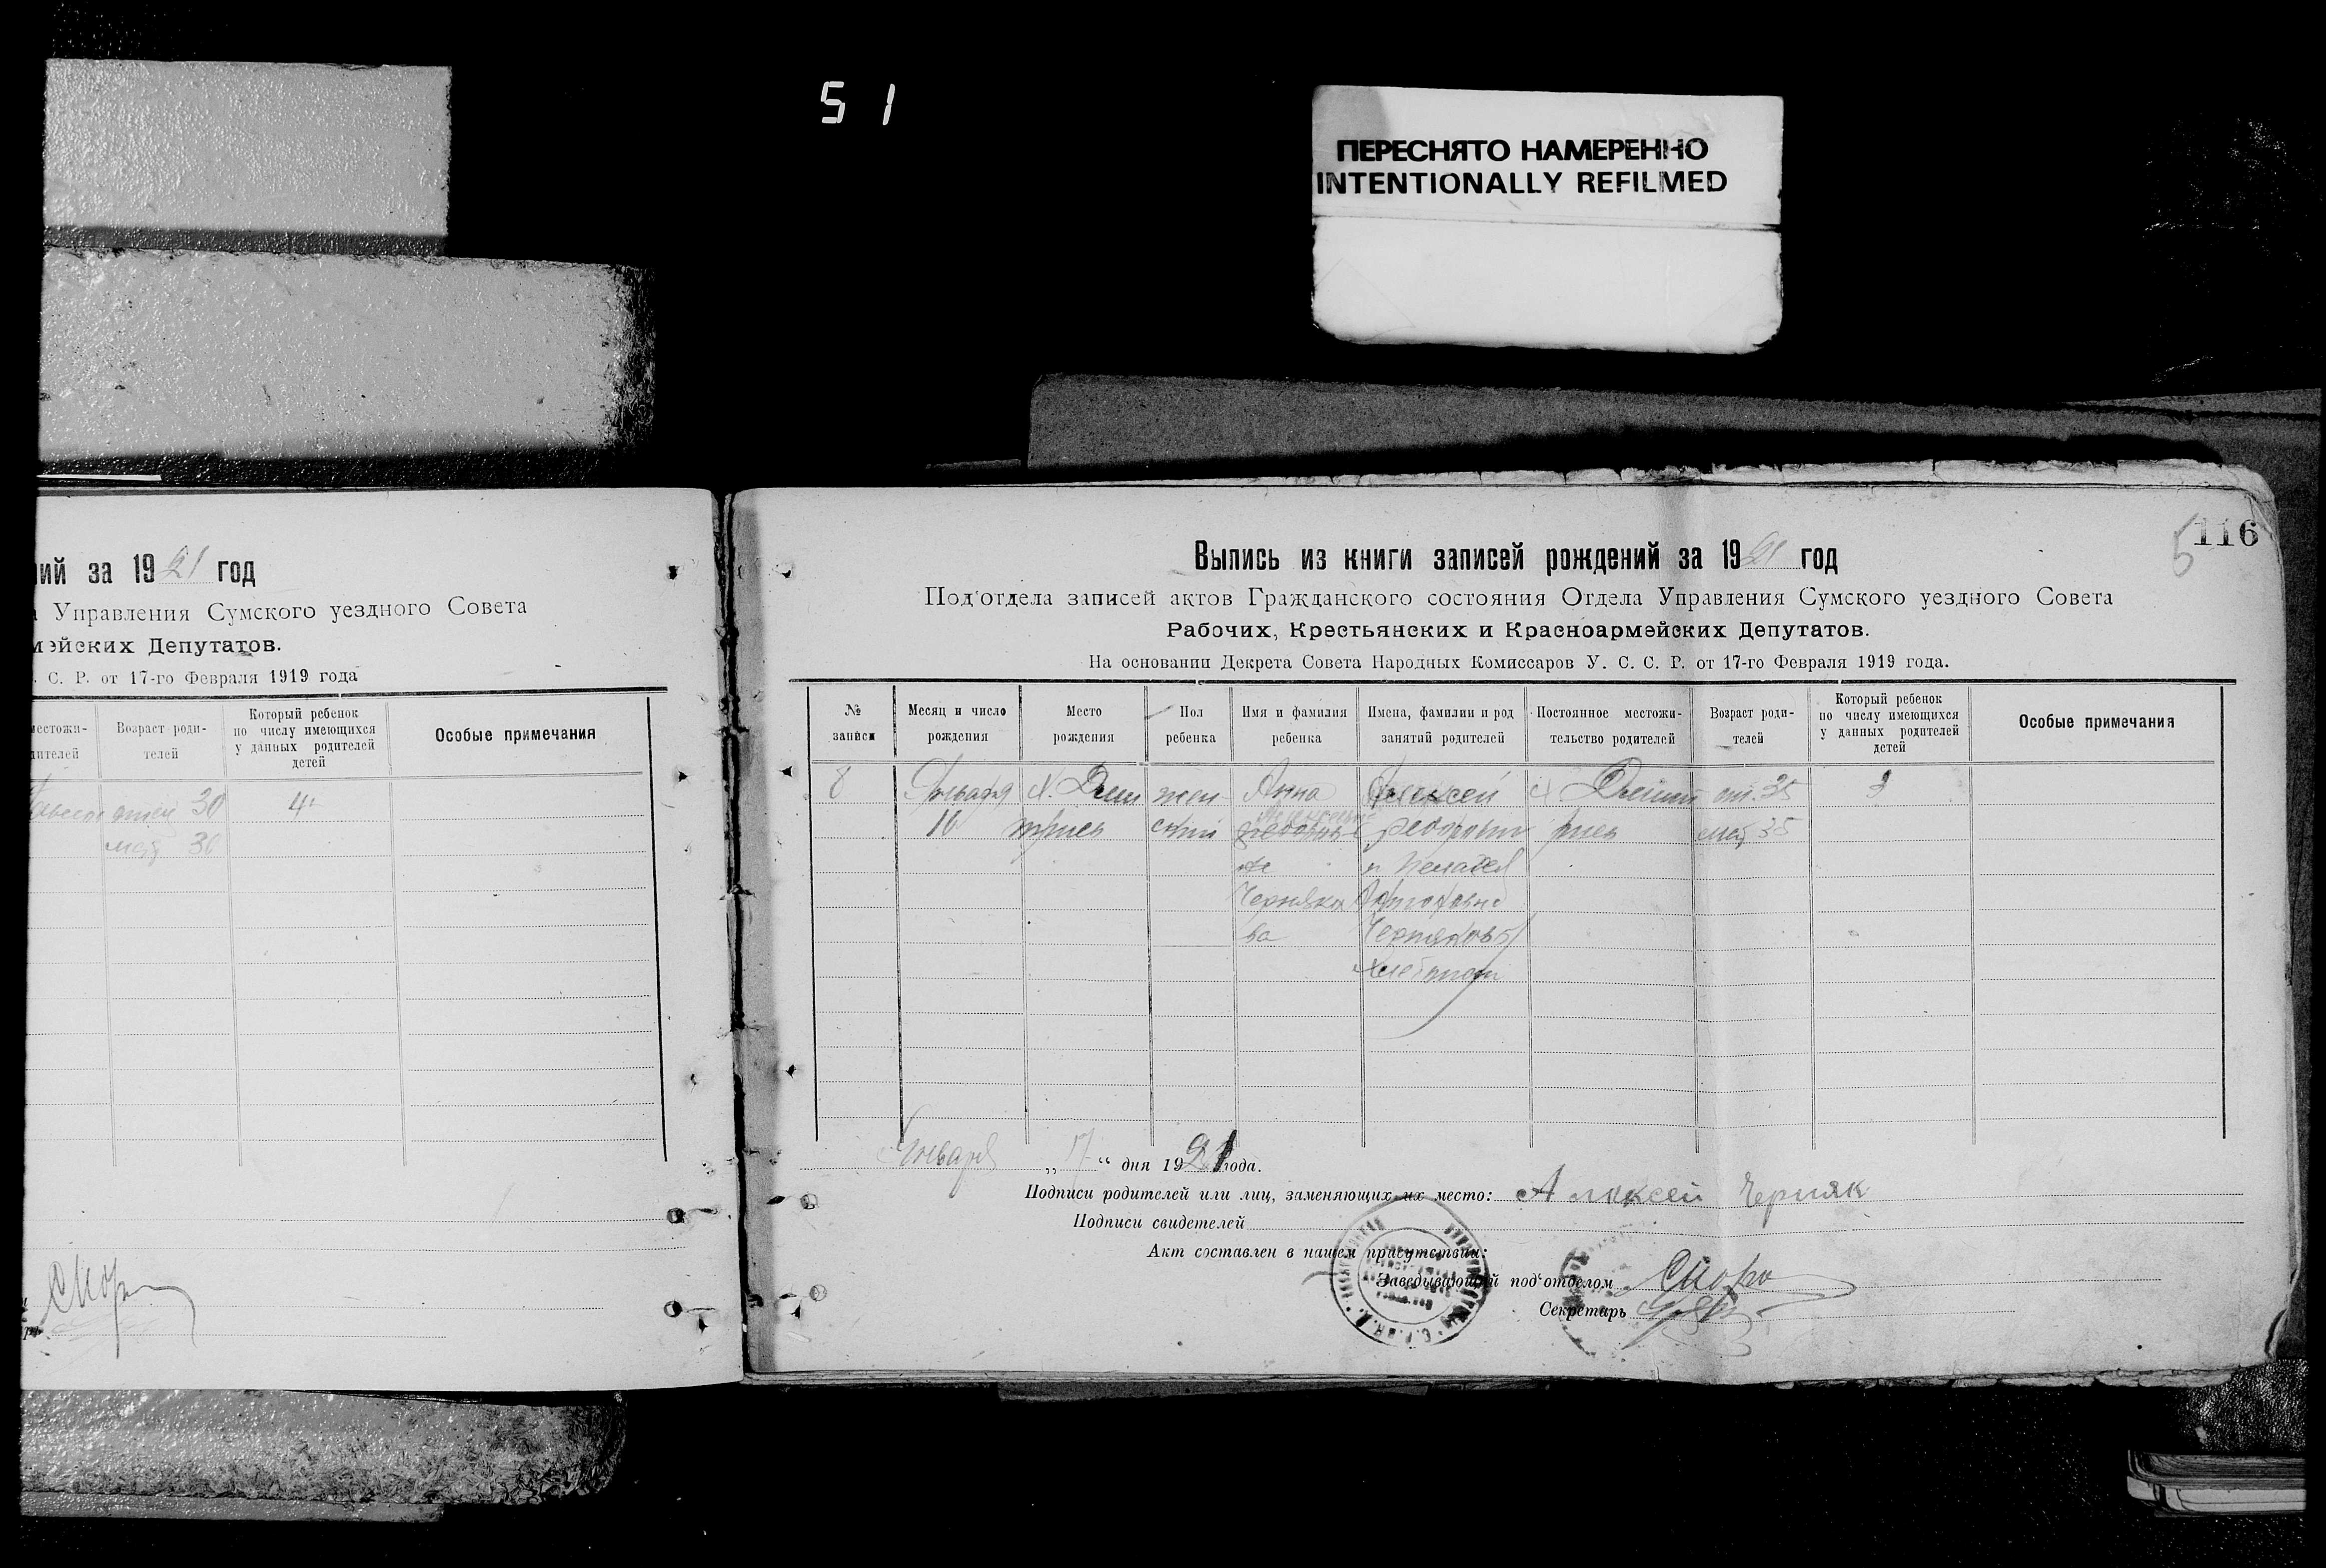 51
ПЕРЕСНЯТО НАМЕРЕННО
INTENTIONALLY REFILMED
ий за 1921 год
а Управления Сумского уездного Совета
мейских Депутатов.
. С. Р. от 17-го Февраля 1919 года
местожи-
дителей
Возраст роди-
телей
Который ребенок
по числу имеющихся
у данных родителей
детей
Особые примечания
отец 30
4
мат 30
116
5
Выпись из книги записей рождений за 1921 год
Под'отдела записей актов Гражданского состояния Отдела Управления Сумского уездного Совета
Рабочих, Крестьянских и Красноармейских Депутатов.
На основании Декрета Совета Народных Комиссаров У. С. С. Р. от 17-го Февраля 1919 года.
№
записи
Месяц и число
рождения
Место
рождения
Пол
ребенка
Имя и фамилия
ребенка
Имена, фамилии и род
занятий родителей
Постоянное местожи-
тельство родителей
Возраст роди-
телей
Который ребенок
по числу имеющихся
у данных родителей
детей
Особые примечания
8
Января
10
жен
ский
Анна
Чернякова
Алексей
Чернякова
от. 35
мат 35
3
Января „17“ дня 1921 года.
Подписи родителей или лиц, заменяющих их место: Алексей Черняк
Подписи свидетелей
Акт составлен в нашем присутствии:
Заведывающий под'отделом
Секретарь